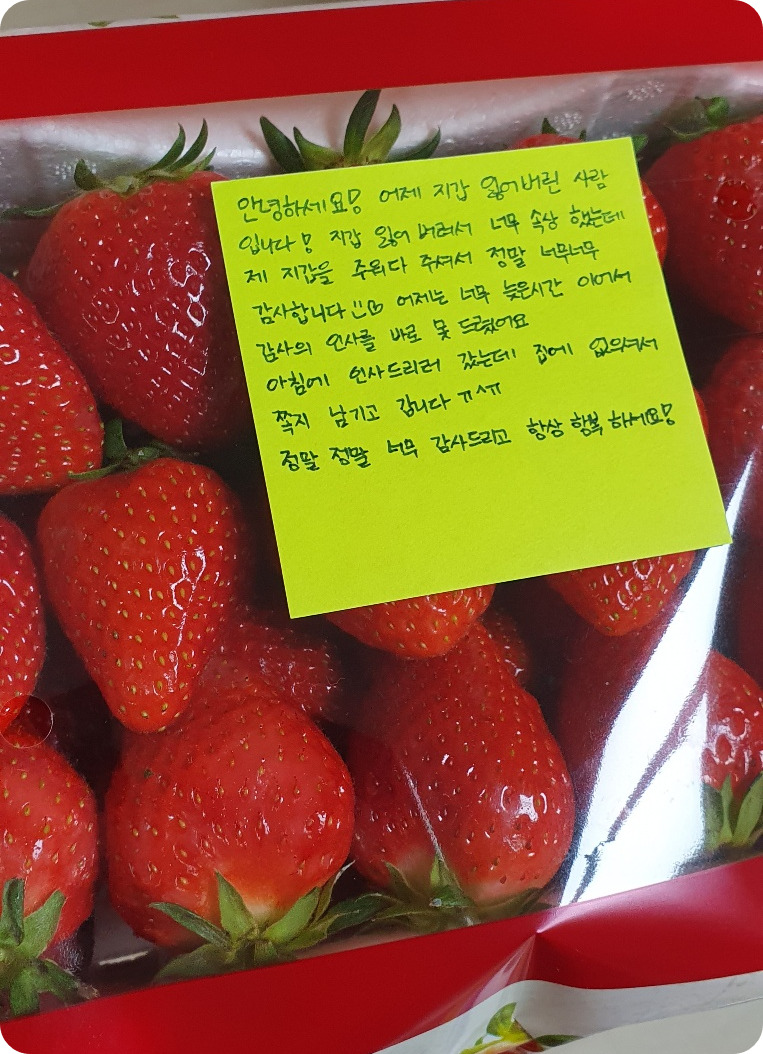 안녕하세요! 어제 지갑 잃어버린 사람
입니다! 지갑 잃어 버려서 너무 속상 했는데
제 지갑을 주워다 주셔서 정말 너무너무
감사합니다 :) 어제는 너무 늦은시간 이어서
감사의 인사를 바로 못 드렸어요
아침에 인사드리러 갔는데 집에 없으셔서
쪽지 남기고 갑니다 ㅠ^ㅠ
정말 정말 너무 감사드리고 항상 행복 하세요!